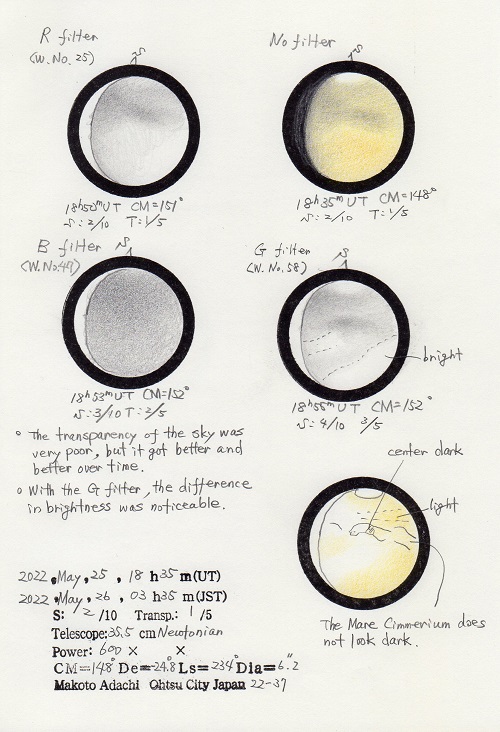 R filter
(W.No.25)
S
18h50m UT CM=151°
S:2/10 T:1/5
No filter
S
18h35m UT CM=148°
S:2/10 T:1/5
B filter
(W.No.47)
S
18h53m UT CM=152°
S:3/10 T:2/5
G filter
(W.No.58)
S
bright
18h56m UT CM=152°
S:4/10 3/5
。The transparency of the sky was
very poor, but it got better and
better over time.
。With the G filter, the difference
in brightness was noticeable.
center dark
light
The Mare Cimmerium does
not look dark.
2022,May,25, 18h35m(UT)
2022,May,26, 03h35m(JST)
S: 2/10 Transp.: 1/5
Telescope:35.5 cm Newtonian
Power: 600 × ×
CM=148° De=-24.8° Ls=234° Dia=6.2"
Makoto Adachi Ohtsu City Japan 22-37